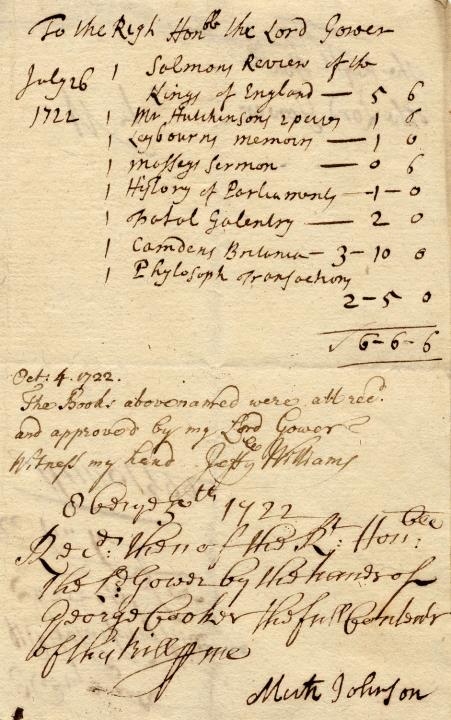 To the Righ Honble the Lord Gower
July 26 1 Salmons Review of the
Kings of England — 5 6
1722 1 Mr. Hutchinsons 2 peices 1 6
1 Leybourns memoirs — 1 0
1 Masseys Sermon — 0 6
1 History of Parliaments — 1 – 0
1 Fatal Galentry — 2 0
1 Camdens Britania — 3 – 10 0
1 Phylosoph Transactions
2 – 5 0
6 – 6 – 6
Oct: 4. 1722.
The Books abovenamed were all recd.
and approved by my Lord Gower
Witness my hand Jeffy Williams
8ber ye 5th 1722
Recd: then of the Rt: Honble:
the Ld Gower by the hands of
George Cooker the full Contents
of this bill me
Math Johnson